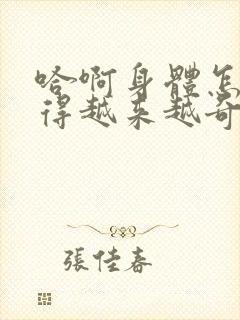 哈啊身體怎
得越来越奇
張佳春